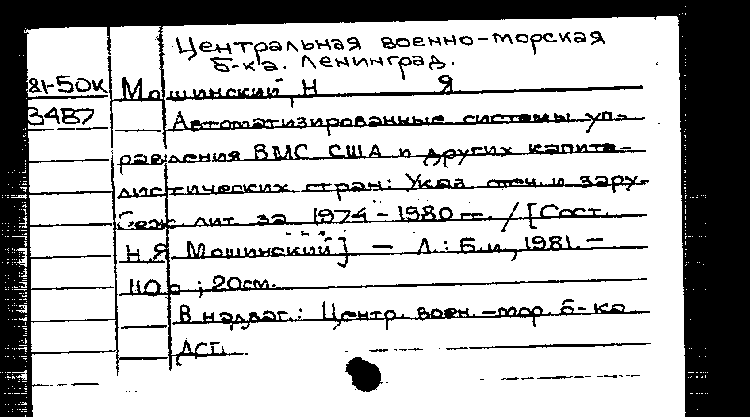 Центральная военно-морская
б-ка. Ленинград.
81-50К Мошинский, Н Я
3487
Автоматизированные системы уп-
равления ВМС США и других капита-
листических стран: Указ. отеч. и зару-
беж. лит. за 1974-1980 гг. / [Сост.
Н.Я. Мошинский] — Л.: Б.и., 1981. —
110 с ; 20см.
В надзаг.: Центр. воен.-мор. б-ка
ДСП.